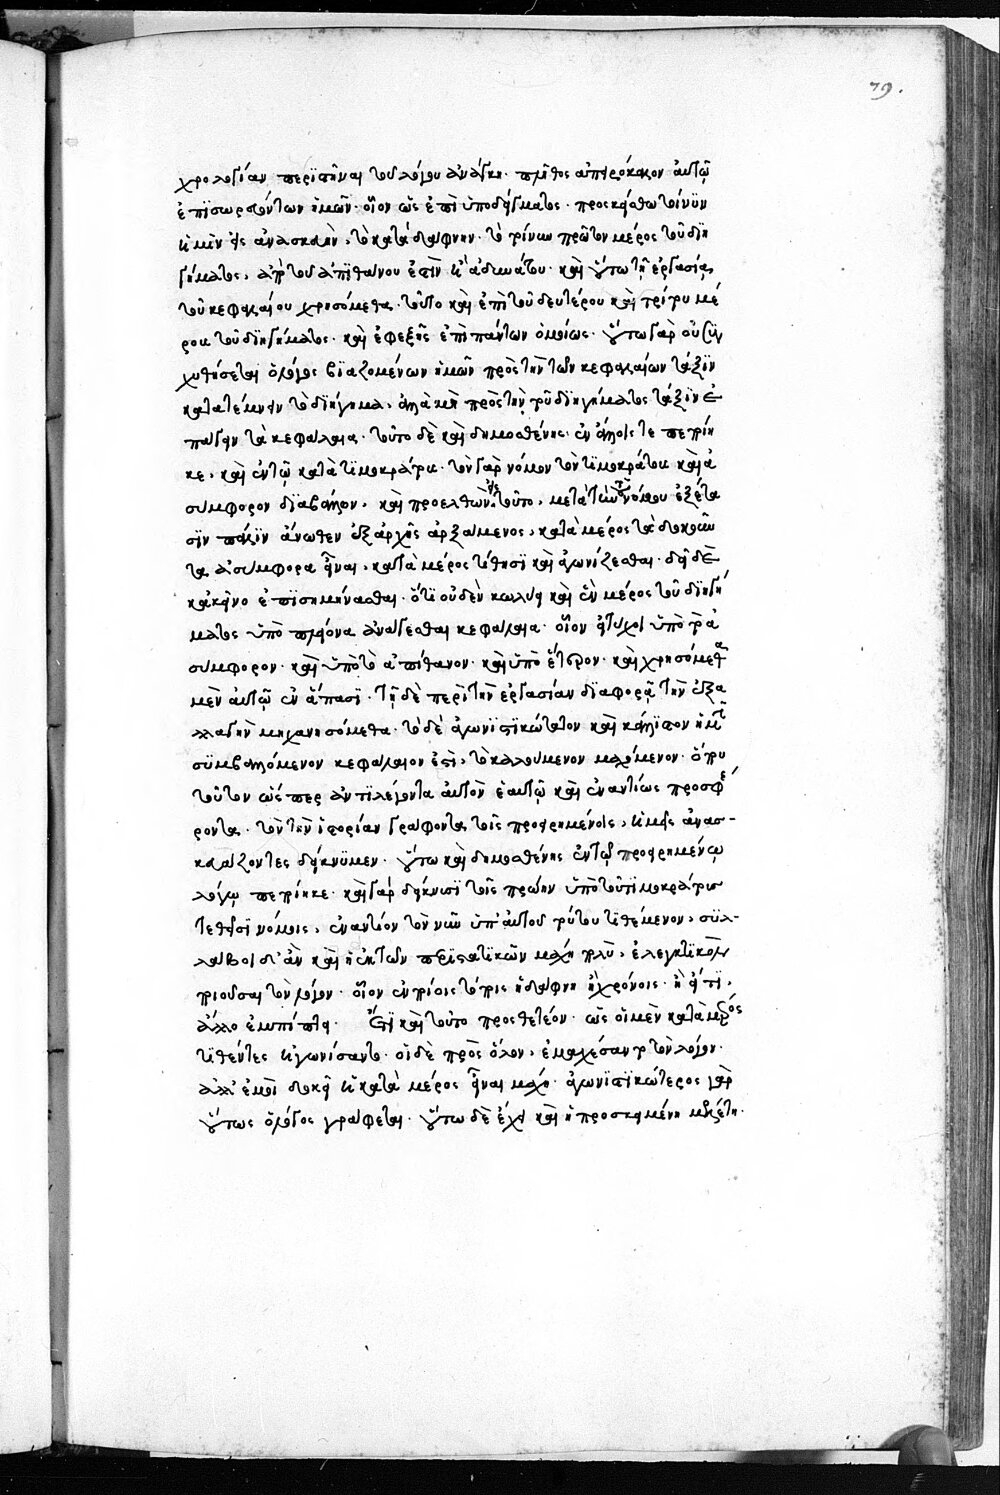 79.
χρολογίαν περιστῆναι τοῦ λόγου ἀνάγκη. πλῆθος ἀπειρόκαλον αὐτῷ
ἐπισωρευόντων ἡμῶν. οἷον ὡς ἐπὶ ὑποδείγματος. προσκείσθω τοίνυν
ἡμῖν εἰς ἀνασκευὴν, τὸ κατὰ δάφνην. τὸ τοίνυν πρῶτον μέρος τοῦ διη
γήματος, ἀπὸ τοῦ ἀπιθάνου ἐστὶν ἢ ἀδυνάτου. καὶ οὕτω τῇ ἐργασίᾳ
τοῦ κεφαλαίου χρησόμεθα. τοῦτο καὶ ἐπὶ τοῦ δευτέρου καὶ τρίτου μέ
ρους τοῦ διηγήματος. καὶ ἐφεξῆς ἐπὶ πάντων ὁμοίως. οὕτω γὰρ οὐ συγ
χυθήσεται ὁ λόγος βιαζομένων ἡμῶν πρὸς τὴν τῶν κεφαλαίων τάξιν
κατατέμνειν τὸ διήγημα. ἀλλὰ μὴ πρὸς τὴν τοῦ διηγήματος τάξιν ἐ
πάγειν τὰ κεφάλαια. τοῦτο δὲ καὶ δημοσθένης ἐν ἄλλοις τε πεποίη
κε, καὶ ἐν τῷ κατὰ τιμοκράτους. τὸν γὰρ νόμον τὸν τιμοκράτους κατὰ
συμφορον διαβάλλων, καὶ προελθὼν εἰς τοῦτο, μετὰ τὴν τῶν νόμων ἐξέτα
σιν πάλιν ἄνωθεν ἐξ ἀρχῆς ἀρξάμενος, κατὰ μέρος τὰ δοκοῦν
τα ἀσύμφορα εἶναι, κατὰ μέρος τίθησι καὶ ἀγωνίζεσθαι. δεῖ δὲ
κἀκεῖνο ἐπισημήνασθαι. ὅτι οὐδὲν κωλύει καὶ ἓν μέρος τοῦ διηγή
ματος ὑπὸ πλείονα ἀνάγεσθαι κεφάλαια. οἷον εἰ τύχοι ὑπὸ τὸ ἀ
σύμφορον. καὶ ὑπὸ τὸ ἀπίθανον. καὶ ὑπὸ ἕτερον. καὶ χρησόμεθα
μὲν αὐτῷ ἐν ἅπασι. τῇ δὲ περὶ τὴν ἐργασίαν διαφορᾷ τὴν ἐξα
λλαγὴν μηχανησόμεθα. τὸ δὲ ἀγωνιστικώτατον καὶ κάλλιστον ἡμῖν
συμβαλλόμενον κεφάλαιον ἐστὶ, τὸ καλούμενον μαχόμενον. ὅπου
τοῦτον ὥσπερ ἀντιλέγοντα αὐτὸν ἑαυτῷ καὶ ἐναντίως προσφέ
ροντα. τὸν τὴν ἱστορίαν γράφοντα τοῖς προειρημένοις, ἡμεῖς ἀνασ-
κευάζοντες δείκνυμεν. οὕτω καὶ δημοσθένης ἐν τῷ προειρημένῳ
λόγῳ πεποίηκε. καὶ γὰρ δείκνυσι τοῖς πρώην ὑπὸ τοῦ τιμοκράτους
τεθεῖσι νόμοις, ἐναντίον τὸν νῦν ὑπ' αὐτοῦ τούτου τιθέμενον, συλ-
λάβοι δ' ἂν καὶ ἡ ἐκ τῶν περιστατικῶν μάχη πλὺ, ἐλεγκτικὸν
ποιοῦσαι τὸν λόγον. οἷον ἐν ποίοις τόποις ἡ δάφνη ἢ χρόνοις. ἢ εἴ τι,
ἄλλο ἐμπίπτει. Ἔτι καὶ τοῦτο προσθετέον. ὡς οἱ μὲν κατὰ μέρος
τιθέντες ἠγωνίσαντο. οἱ δὲ πρὸς ὅλον, ἐμαχέσαντο τὸν λόγον.
ἀλλ' ἐμοὶ δοκεῖ ἡ κατὰ μέρος εἶναι μάχη. ἀγωνιστικώτερος γὰρ
οὕτως ὁ λόγος γράφεται. οὕτω δὲ ἔχει καὶ ἡ προσκειμένη μελέτη.